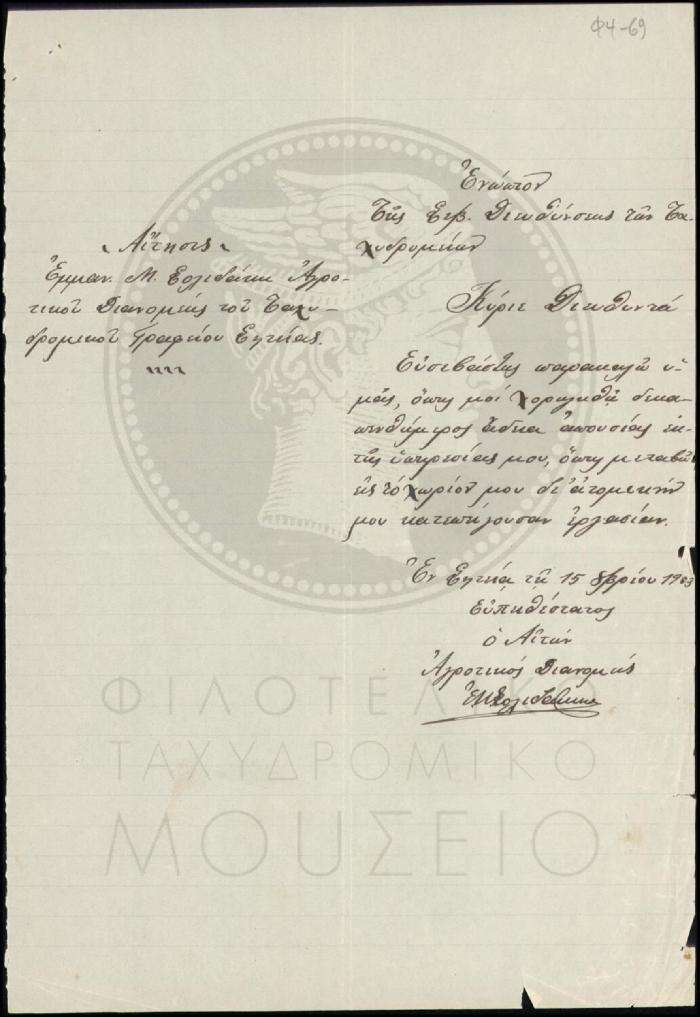 Φ4-69
Ἐνώπιον
Τῆς Σεβ. Διευθύνσεως τῶν Τα-
χυδρομείων
Αἴτησις
Ἐμμαν. Μ. Σολιδάκη Ἀγρο-
τικοῦ Διανομέως τοῦ Ταχυ-
δρομικοῦ Γραφείου Σητείας.
Κύριε Διευθυντά
Εὐσεβάστως παρακαλῶ ὑ-
μᾶς, ὅπως μοί χορηγηθῇ δεκα-
πενθήμερος ἄδεια ἀπουσίας ἐκ
τῆς ὑπηρεσίας μου, ὅπως μεταβῶ
εἰς τό χωρίον μου δι' ἀτομικήν
μου κατεπείγουσαν ἐργασίαν.
Ἐν Σητείᾳ τῇ 15 8βρίου 1903
Εὐπειθέστατος
ὁ Αἰτῶν
Ἀγροτικός Διανομεύς
ΦΙΛΟΤΕΛΙΚΟ
ΤΑΧΥΔΡΟΜΙΚΟ
ΜΟΥΣΕΙΟ